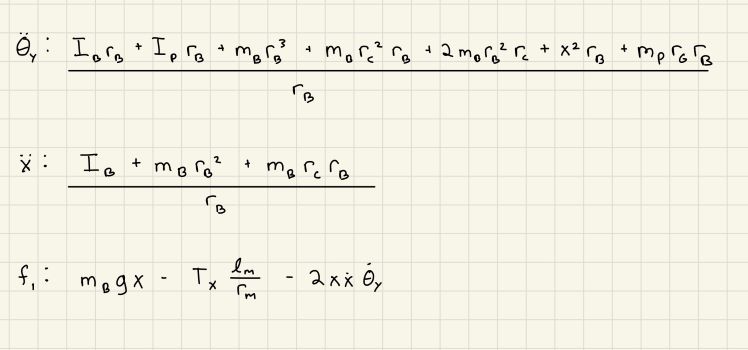 θ̈_y : I_B r_B + I_P r_B + m_B r_B³ + m_B r_C² r_B + 2 m_B r_B² r_C + x² r_B + m_P r_G r_B
r_B
ẍ : I_B + m_B r_B² + m_B r_C r_B
r_B
f_1 : m_B g x - T_x l_m / r_m - 2 x ẋ θ̇_y